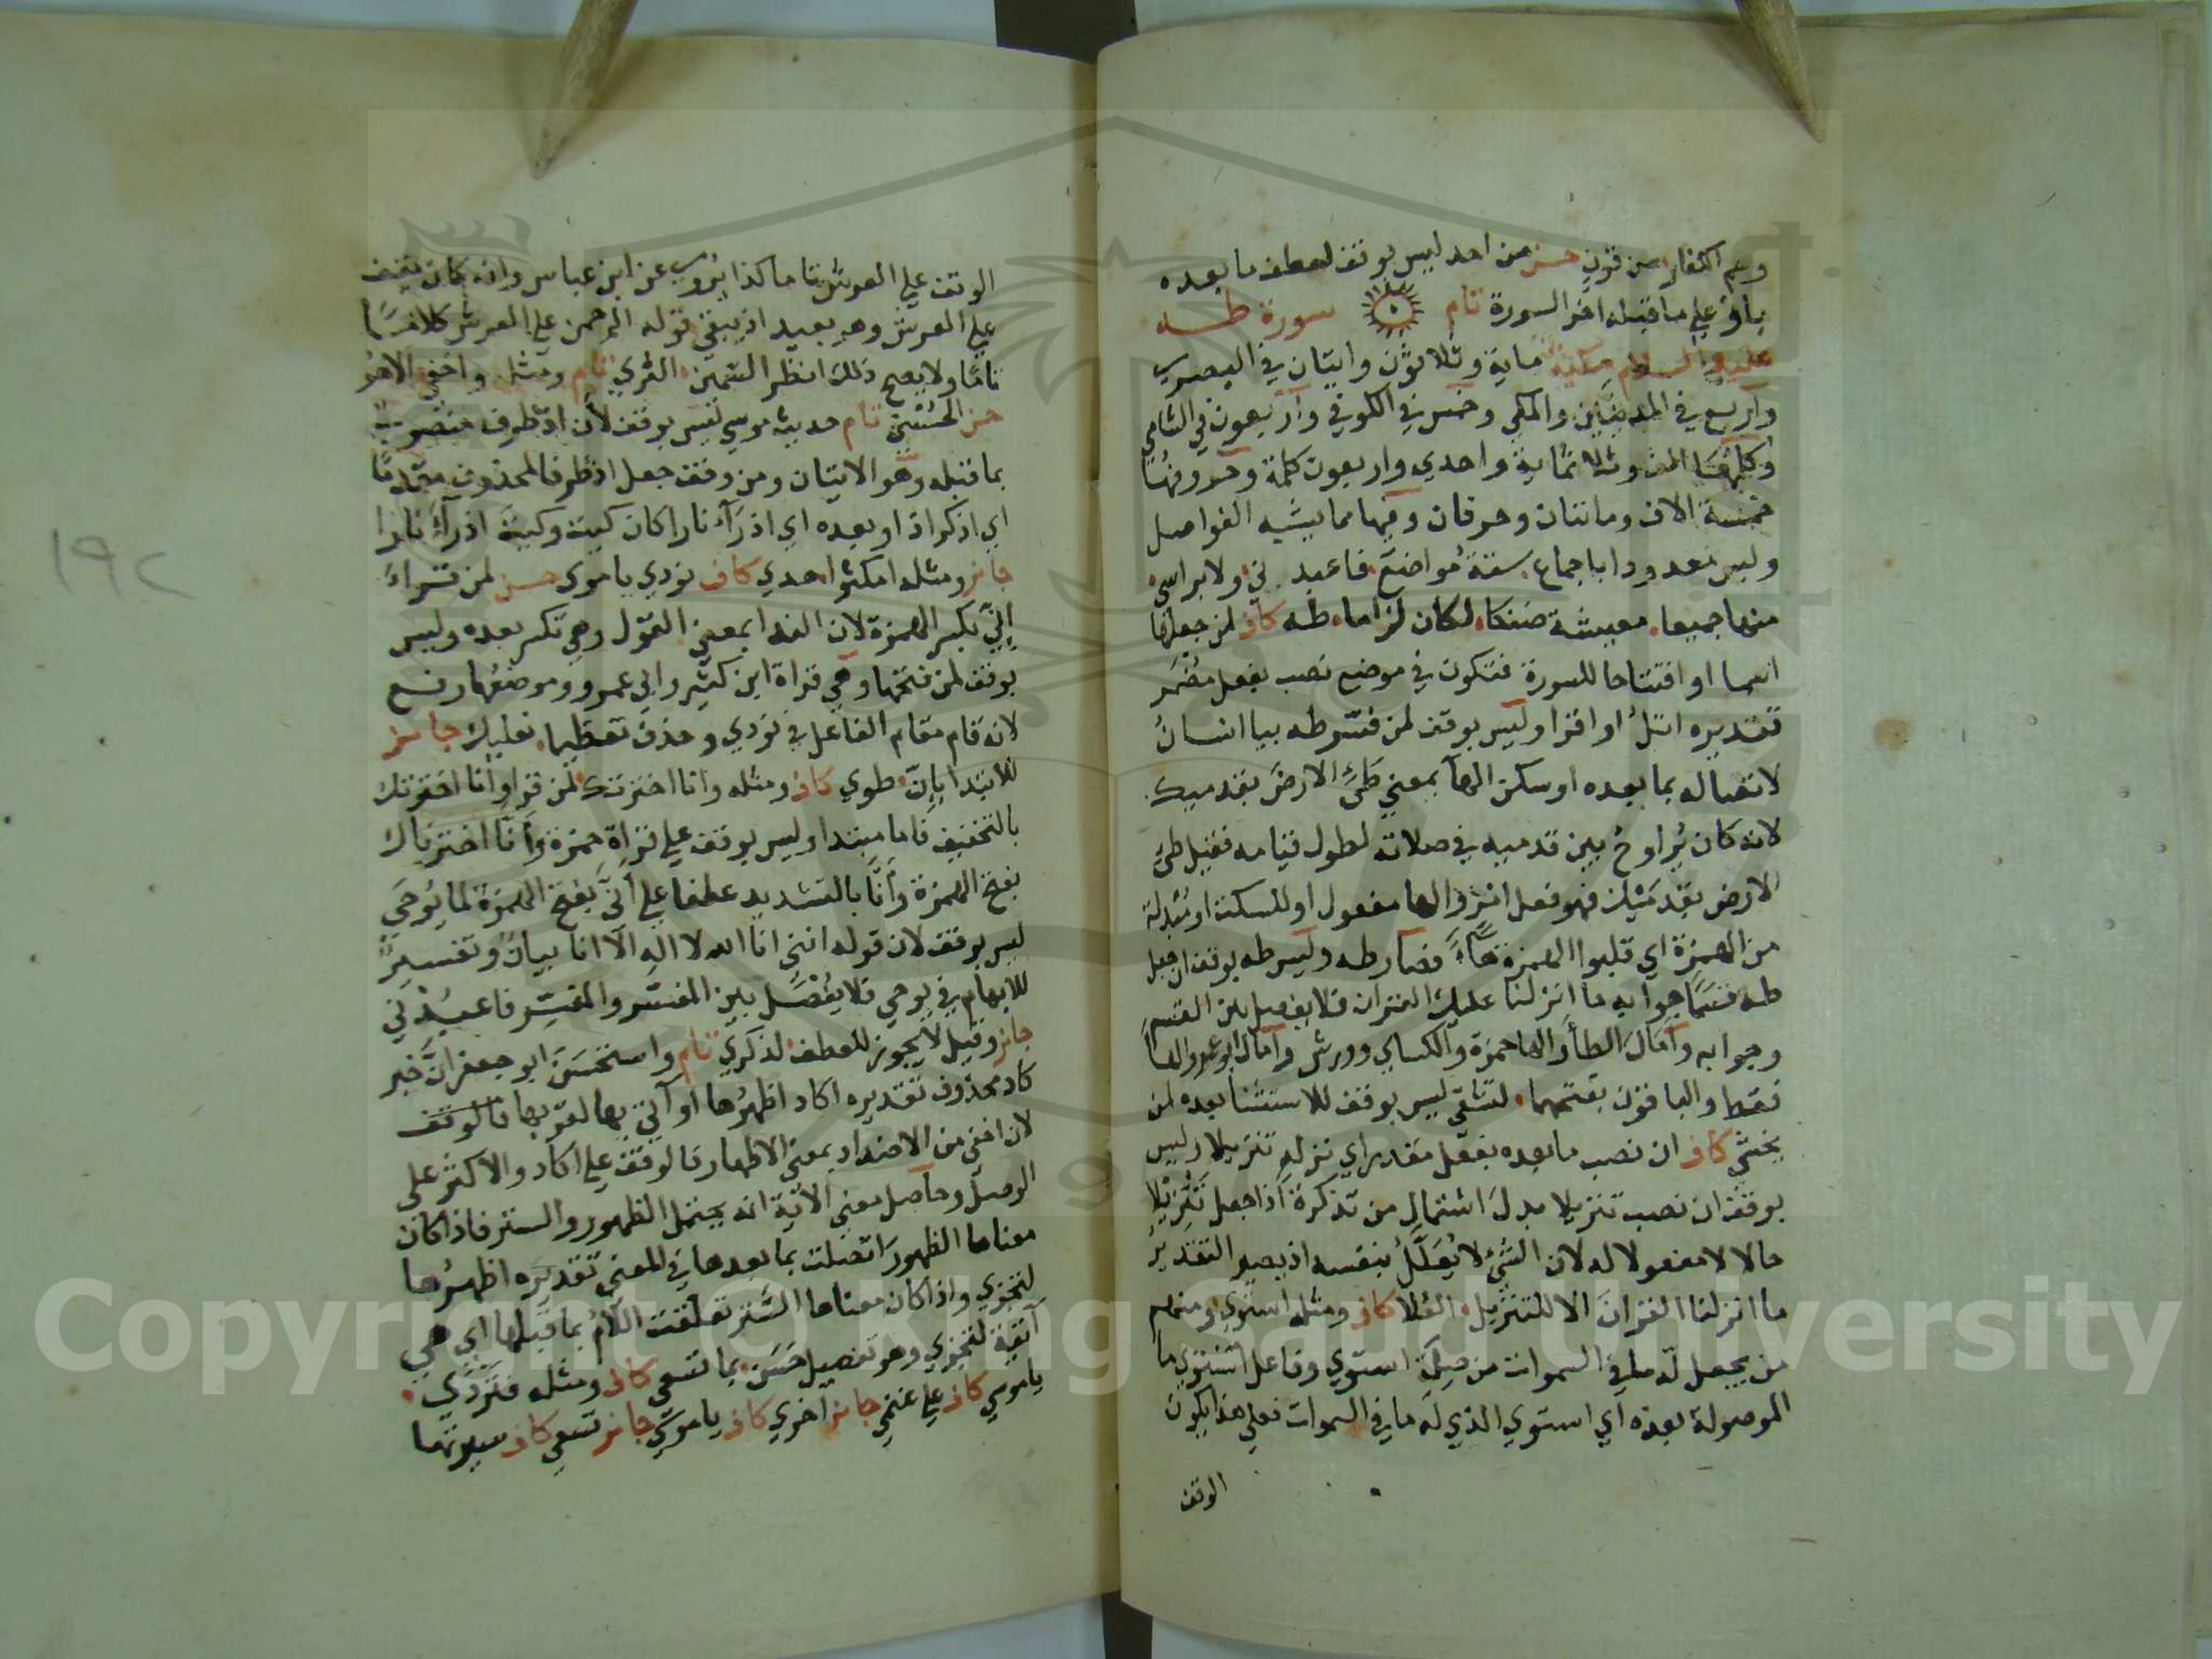 وهم الكفار من قرن حسن من احد ليس بوقف لعطف ما بعده
باو علي ما قبله اخر السورة تام سورة طه
عليه السلام مكية ماية وثلاثون وايتان في البصري
واربع في المدنيين والمكي وخمس في الكوفي واربعون في الشامي
وكلمها الف وثلاثماية واحدي واربعون كلمة وحروفها
خمسة الاف ومائتان وحرفان وفيها مما يشبه الفواصل
وليس معدودا باجماع ستة مواضع فاعبدني ولا براسي
منها جميعا معيشة ضنكا لكان لزاما طه كاف لمن جعلها
اسما او افتتاحا للسورة فتكون في موضع نصب بفعل مضمر
تقديره اتل او اقرا وليس بوقف لمن فسر طه بيا انسان
لاتصاله بما بعده او سكن الهآ بمعني طئ الارض بقدميك
لانه كان يراوح بين قدميه في صلاته لطول قيامه فقيل طئ
الارض بقدميك فهو فعل امر والها مفعول او للسكت او مبدلة
من الهمزة اي قلبوا الهمزة هاء فصار طه وليس طه بوقف ان جعل
طه قسما جوابه ما انزلنا عليك القران فلا يفصل بين القسم
وجوابه وامال الطأ والها حمزة والكساي وورش وامال ابو عمرو الها
فقط والباقون بفتحهما لتشقي ليس بوقف للاستثنا بعده لمن
يخشي كاف ان نصب ما بعده بفعل مقدر اي نزله تنزيلا وليس
بوقف ان نصب تنزيلا بدل اشتمال من تذكرة اذا جعل تنزيلا
حالا لا مفعولا له لان الشئ لا يعلل بنفسه اذ يصير التقدير
ما انزلنا القران الا للتنزيل العلا كاف ومثله استوي ومنهم
من يجعل له ما في السموات من صلة استوي وفاعل استوي ما
الموصولة بعده اي استوي الذي له ما في السموات فعلي هذا يكون
الوقف
الوقف علي العرش تاما كذا يروي عن ابن عباس وانه كان يقف
علي العرش وهو بعيد اذ يبقي قوله الرحمن علي العرش كلاما
تاما ولا يصح ذلك انظر السمين الثري تام ومثله واخفي الا هو
حسن الحسني تام حديث موسي ليس بوقف لأن اذ ظرف منصوب
بما قبله وهو الاتيان ومن وقف جعل اذ ظرفا لمحذوف مقدما
اي اذكر اذ او بعده اي اذ رآء نارا كان كيت وكيت اذ رآء نارا
جايز ومثله امكثوا هدي كاف نودي ياموسي حسن لمن قراء
إني بكسر الهمزة لان الندا بمعني القول وهي تكسر بعده وليس
بوقف لمن فتحها وهي قراة ابن كثير وابي عمرو وموضعها رفع
لانه قام مقام الفاعل في نودي وحذف تعظيما نعليك جايز
للابتدا بإن طوي كاف ومثله وانا اخترتك لمن قرا وأنا اخترتك
بالتخفيف فانا مبتدا وليس بوقف علي قراة حمزة وأنا اخترناك
بفتح الهمزة وأنا بالتشديد عطفا علي أني بفتح الهمزة لما يوحي
ليس بوقف لان قوله انني انا الله لا اله الا انا بيان وتفسير
للابهام في يوحي فلا يفصل بين المفسر والمفسر فاعبدني
جايز وقيل لا يجوز للعطف لذكري تام واستحسن ابو جعفر ان خبر
كاد محذوف تقديره اكاد اظهرها او آتي بها لقربها فالوقف
لان اخفي من الاضداد بمعني الاظهار فالوقف علي اكاد والاكثر علي
الوصل وحاصل معني الاية انه يحتمل الظهور والستر فاذا كان
معناها الظهور اتصلت بما بعدها في المعني تقديره اظهرها
لتجزي واذا كان معناها الستر تعلقت اللام بما قبلها اي هي
آتية لتجزي وهو تفصيل حسن بما تسعي كاف ومثله فتردي
ياموسي كاف علي غنمي جايز اخري كاف ياموسي جايز تسعي كاف سيرتها
١٩٢
Copyright © King Saud University